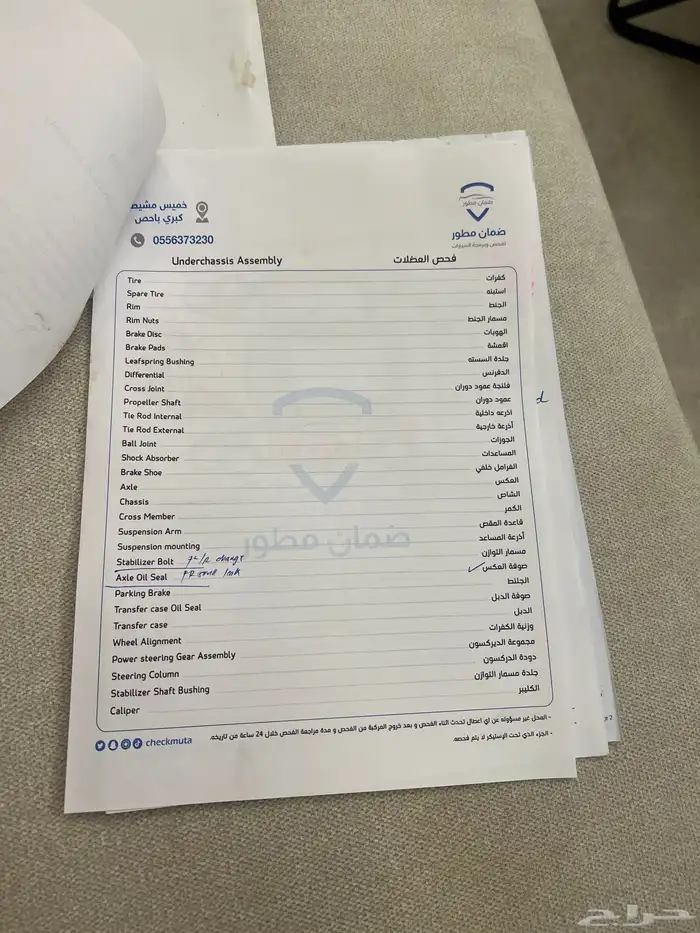 خميس مشيط
كبري باحص
0556373230
ضمان مطور
ضمان مطور
لفحص وبرمجة السيارات
Underchassis Assembly فحص العضلات
Tire كفرات
Spare Tire استبنه
Rim الجنط
Rim Nuts مسمار الجنط
Brake Disc الهوبات
Brake Pads اقمشة
Leafspring Bushing جلدة السسته
Differential الدفرنس
Cross Joint فلنجة عمود دوران
Propeller Shaft عمود دوران
Tie Rod Internal اذرعه داخلية
Tie Rod External أذرعة خارجية
Ball Joint الجوزات
Shock Absorber المساعدات
Brake Shoe الفرامل خلفي
Axle العكس
Chassis الشاص
Cross Member الكمر
Suspension Arm قاعدة المقص
Suspension mounting أذرعة المساعد
Stabilizer Bolt change مسمار التوازن
Axle Oil Seal صوفة العكس
Parking Brake الجلنط
Transfer case Oil Seal صوفة الدبل
Transfer case الدبل
Wheel Alignment وزنية الكفرات
Power steering Gear Assembly مجموعة الديركسون
Steering Column دودة الدركسون
Stabilizer Shaft Bushing جلدة مسمار التوازن
Caliper الكليبر
ضمان مطور
- المحل غير مسؤوله عن اي اعطال تحدث اثناء الفحص و بعد خروج المركبة من الفحص و مدة مراجعة الفحص خلال 24 ساعة من تاريخه.
- الجزء الذي تحت الإستيكر لا يتم فحصه.
checkmuta
حراج